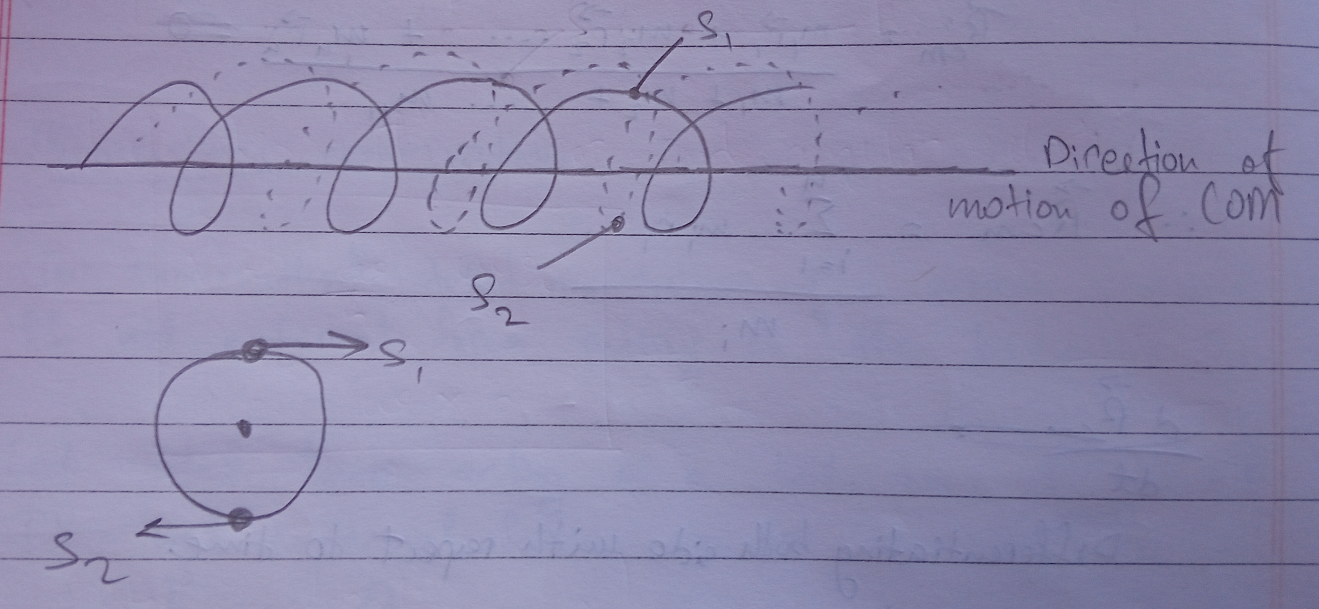 S₁
Direction of
motion of COM
S₂
S₁
S₂